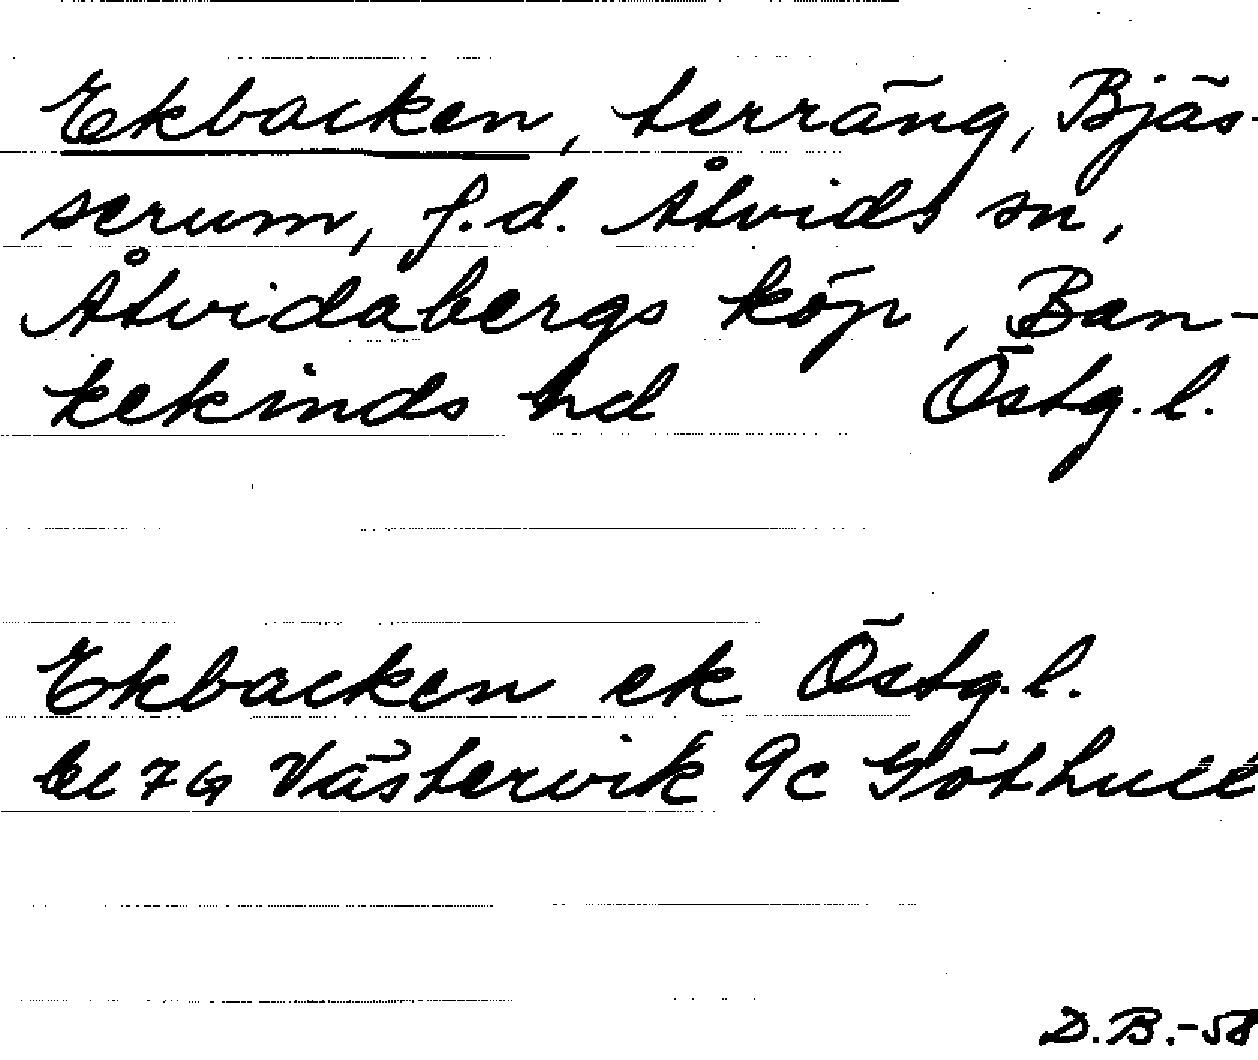 Ekbacken, terräng, Bjäs-
serum, f.d. Åtvids sn,
Åtvidabergs köp, Ban-
kekinds hd Östg. l.
Ekbacken ek Östg. l.
bl 7G Västervik 9c Göthult
D.B.-58